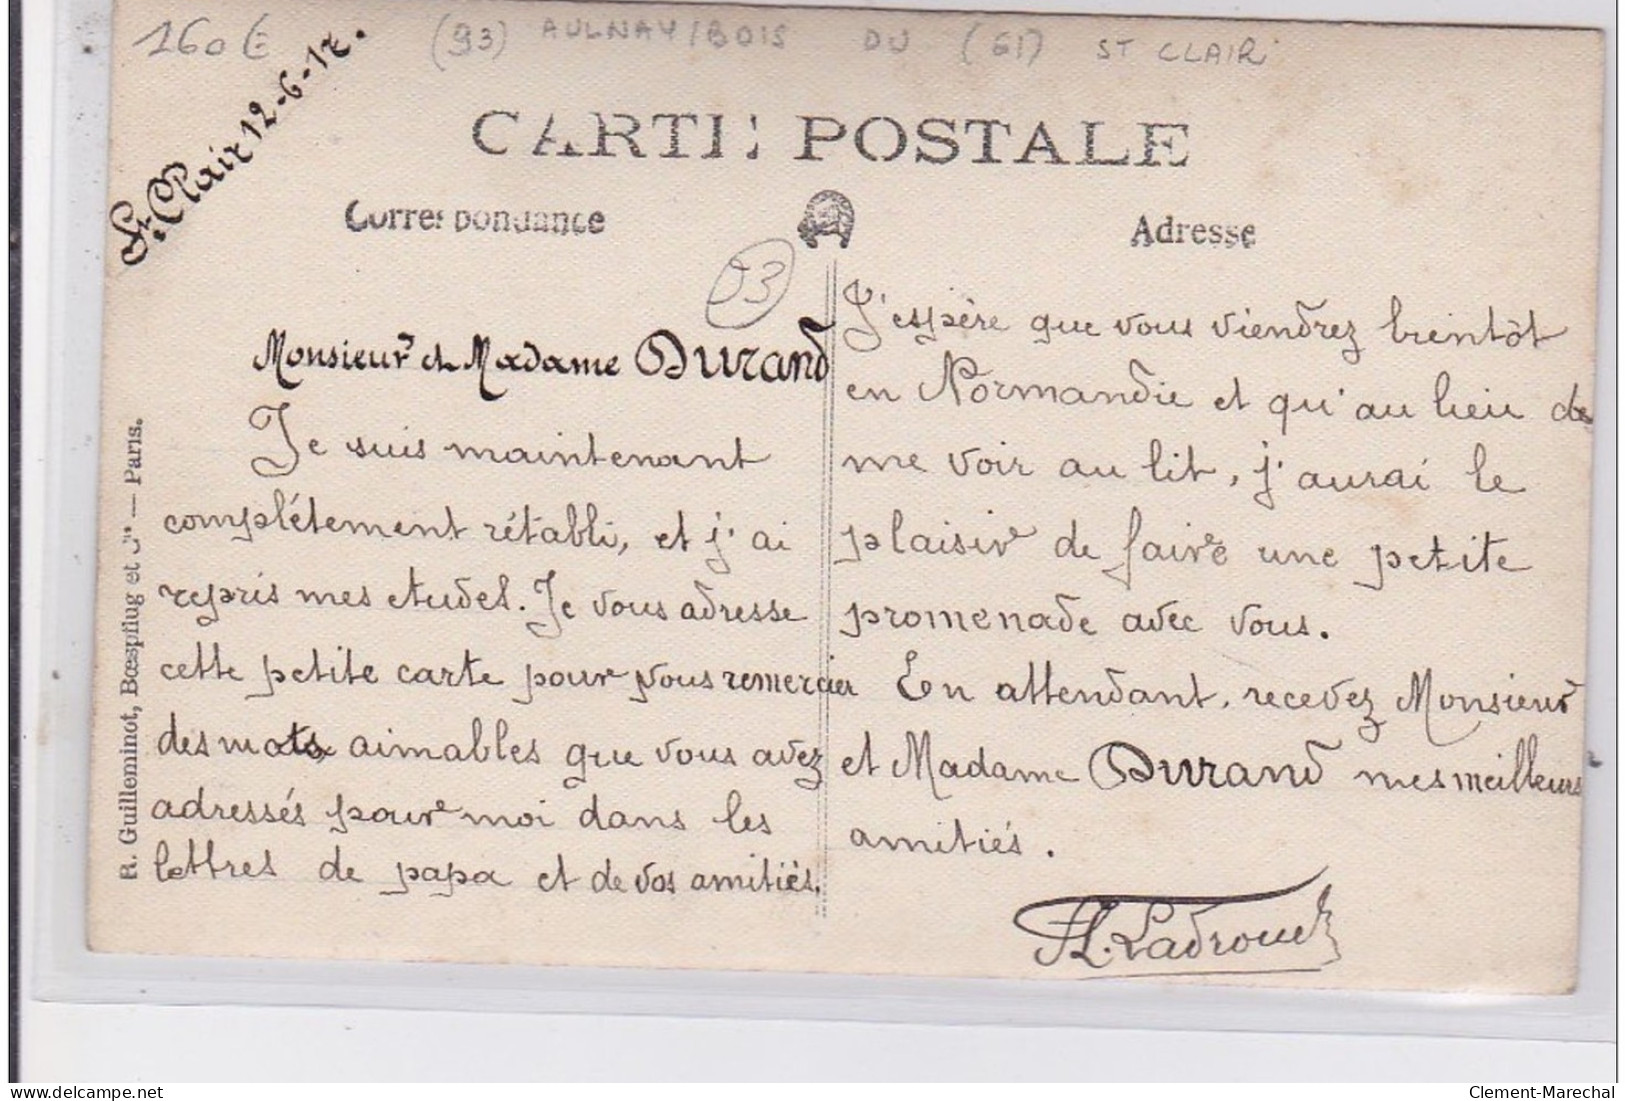 160 €
(93) AULNAY/BOIS DU (61) ST CLAIR
St Clair 12-6-17.
CARTE POSTALE
Correspondance
Adresse
93
Monsieur et Madame Durand
Je suis maintenant
complétement rétabli, et j'ai
repris mes etudes. Je vous adresse
cette petite carte pour vous remercier
des mots aimables que vous avez
adressés pour moi dans les
lettres de papa et de vos amitiés.
J'espère que vous viendrez bientôt
en Normandie et qu'au lieu de
me voir au lit, j'aurai le
plaisir de faire une petite
promenade avec vous.
En attendant, recevez Monsieur
et Madame Durand mes meilleurs
amitiés.
R. Guilleminot, Bœspflug et Cie — Paris.
Clement-Marechal